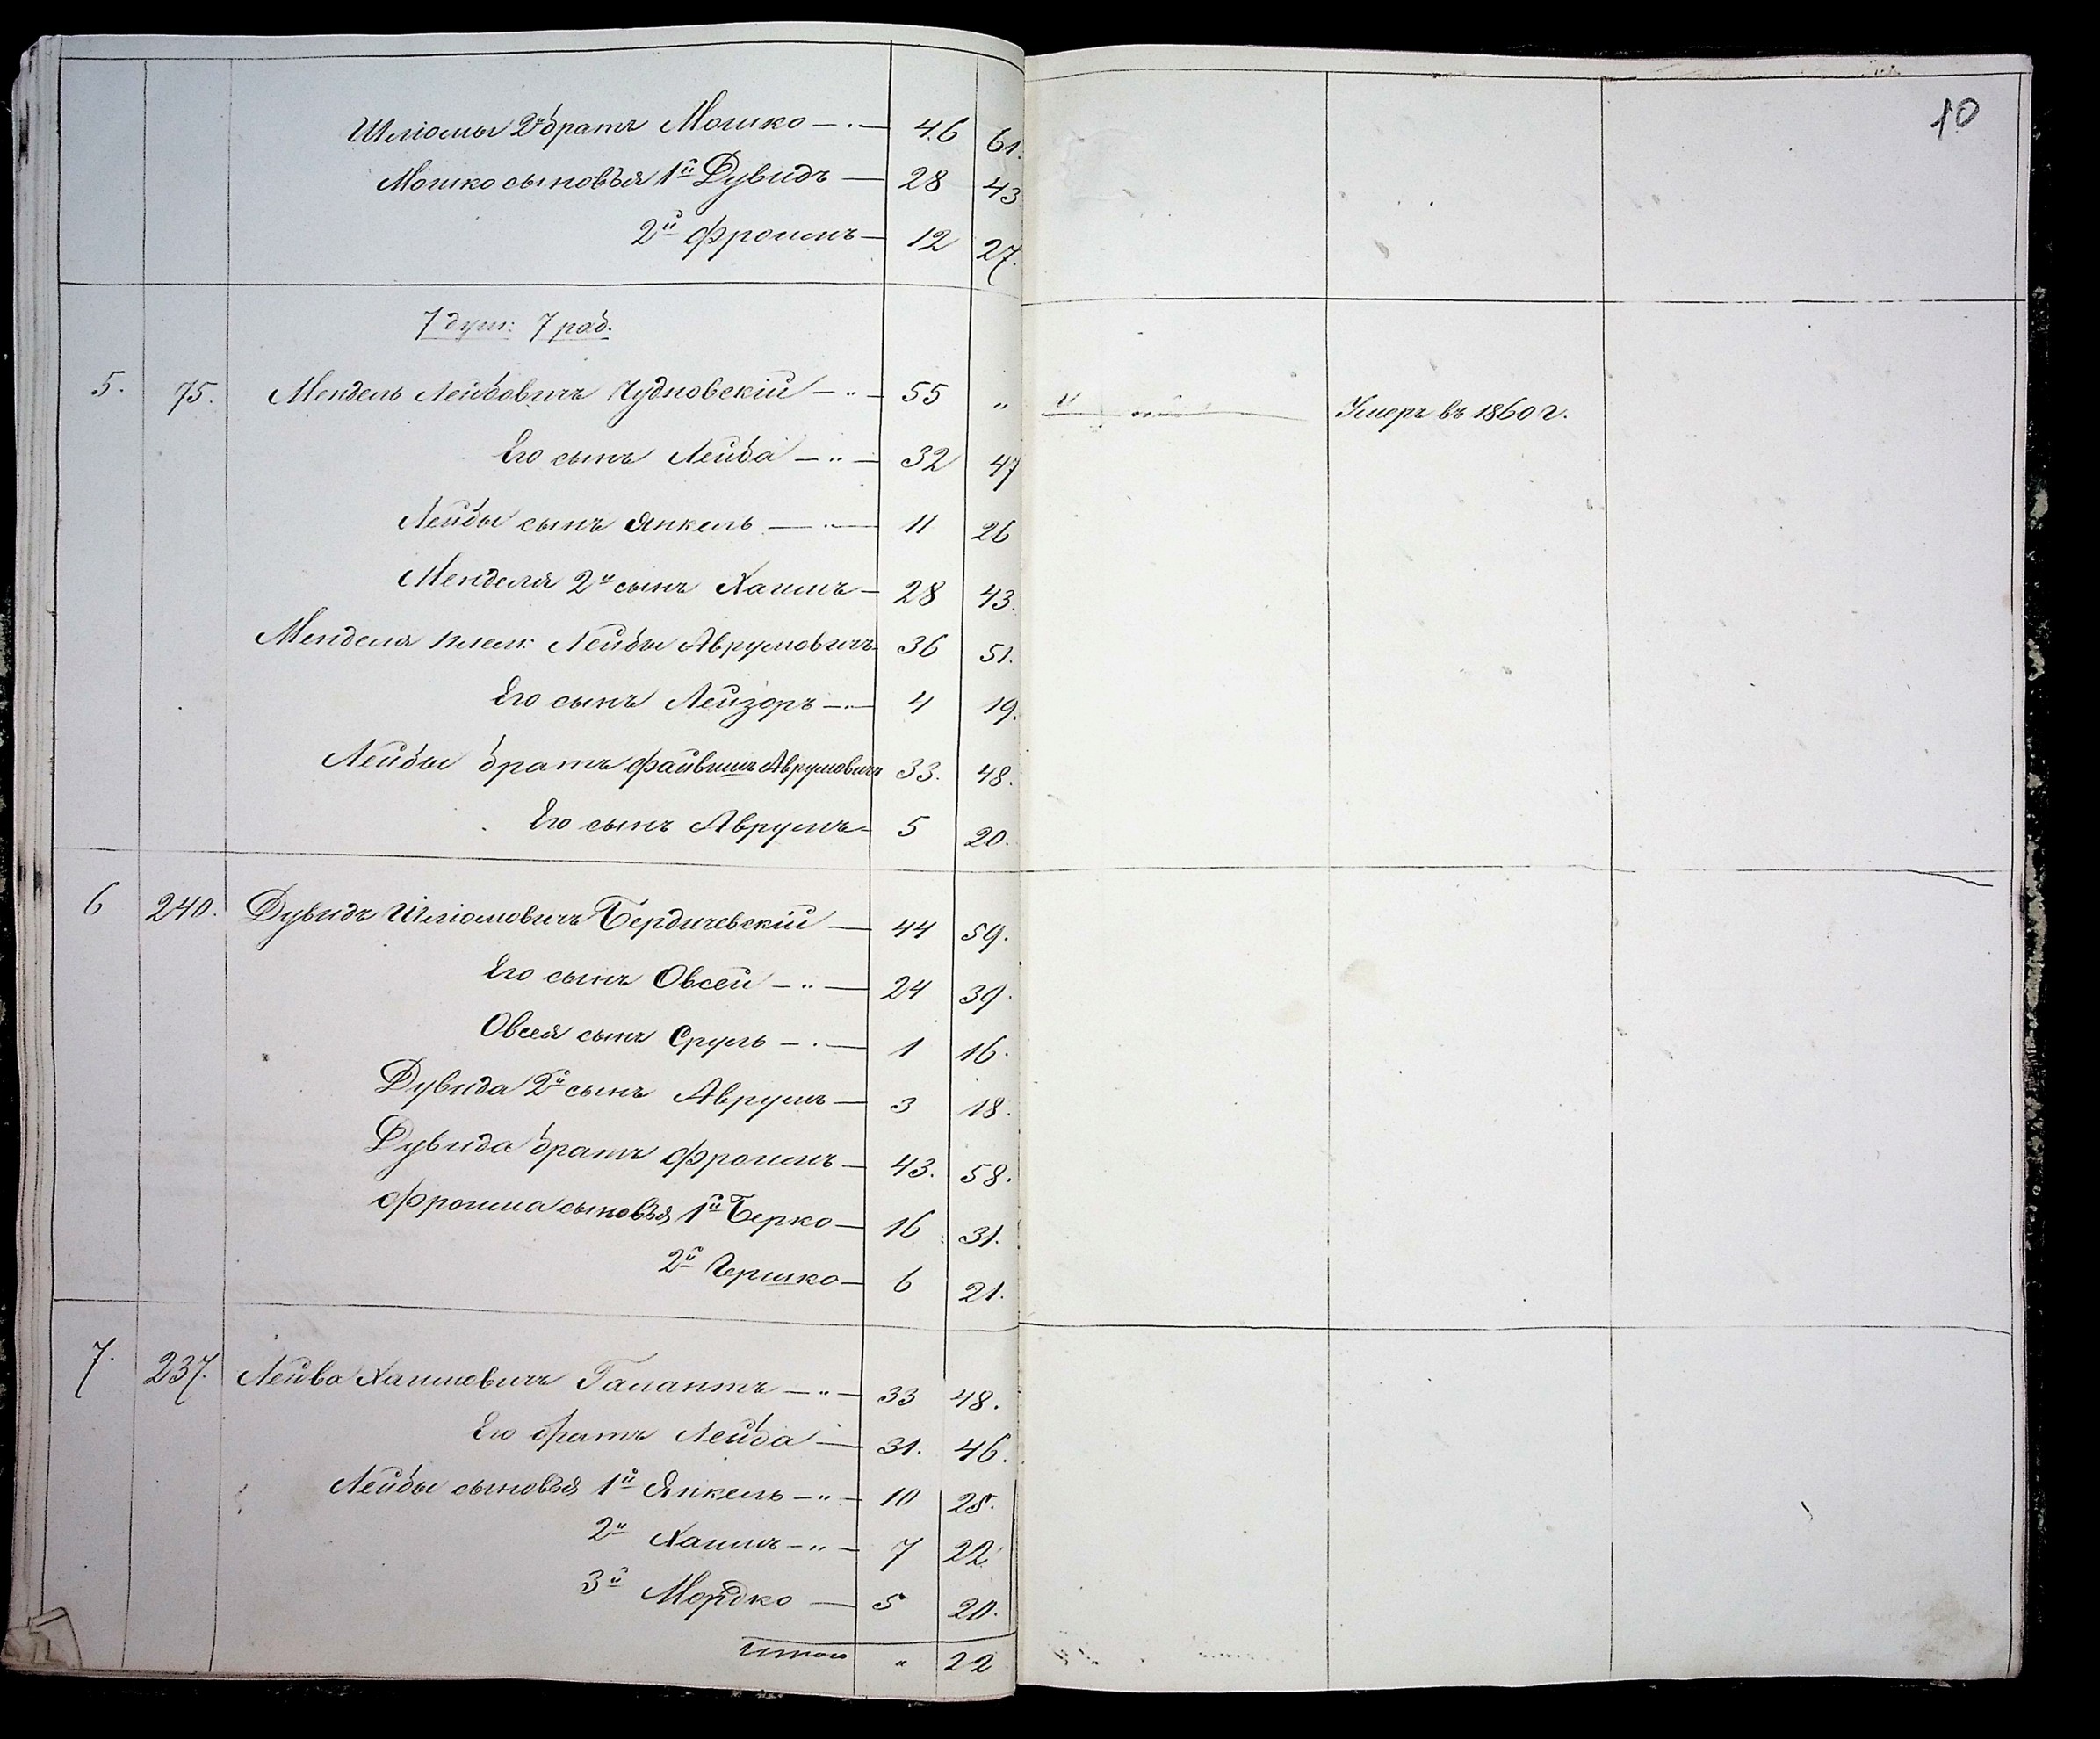 10
Шліомы 2й братъ Мошко — 46 61.
Мошко сыновъя 1й Дувидъ — 28 43.
2й Фроимъ — 12 27.
7 душ: 7 раб.
5. 75. Мендель Лейбовичъ Чудновскій — " — 55 " " Умеръ въ 1860 г.
Его сынъ Лейба — " — 32 47
Лейбы сынъ Янкель — " — 11 26
Менделя 2й сынъ Хаимъ — 28 43.
Менделя плем: Лейбы Аврумовичъ 36 51.
Его сынъ Лейзоръ — " — 4 19.
Лейбы братъ Файвишъ Аврумовичъ 33. 48.
Его сынъ Аврумъ — 5 20.
6 240. Дувидъ Шліомовичъ Бердичевскій — 44 59.
Его сынъ Овсей — " — 24 39.
Овсея сынъ Сруль — . — 1 16.
Дувида 2й сынъ Аврумъ — 3 18.
Дувида братъ Фроимъ — 43. 58.
Фроима сыновъя 1й Берко — 16 31.
2й Гершко — 6 21.
7. 237. Лейва Хаимовичъ Галантъ — " — 33 48.
Его братъ Лейба — 31. 46.
Лейбы сыновъя 1й Янкель — " — 10 25.
2й Хаимъ — " — 7 22.
3й Мордко — 5 20.
Итого " 22